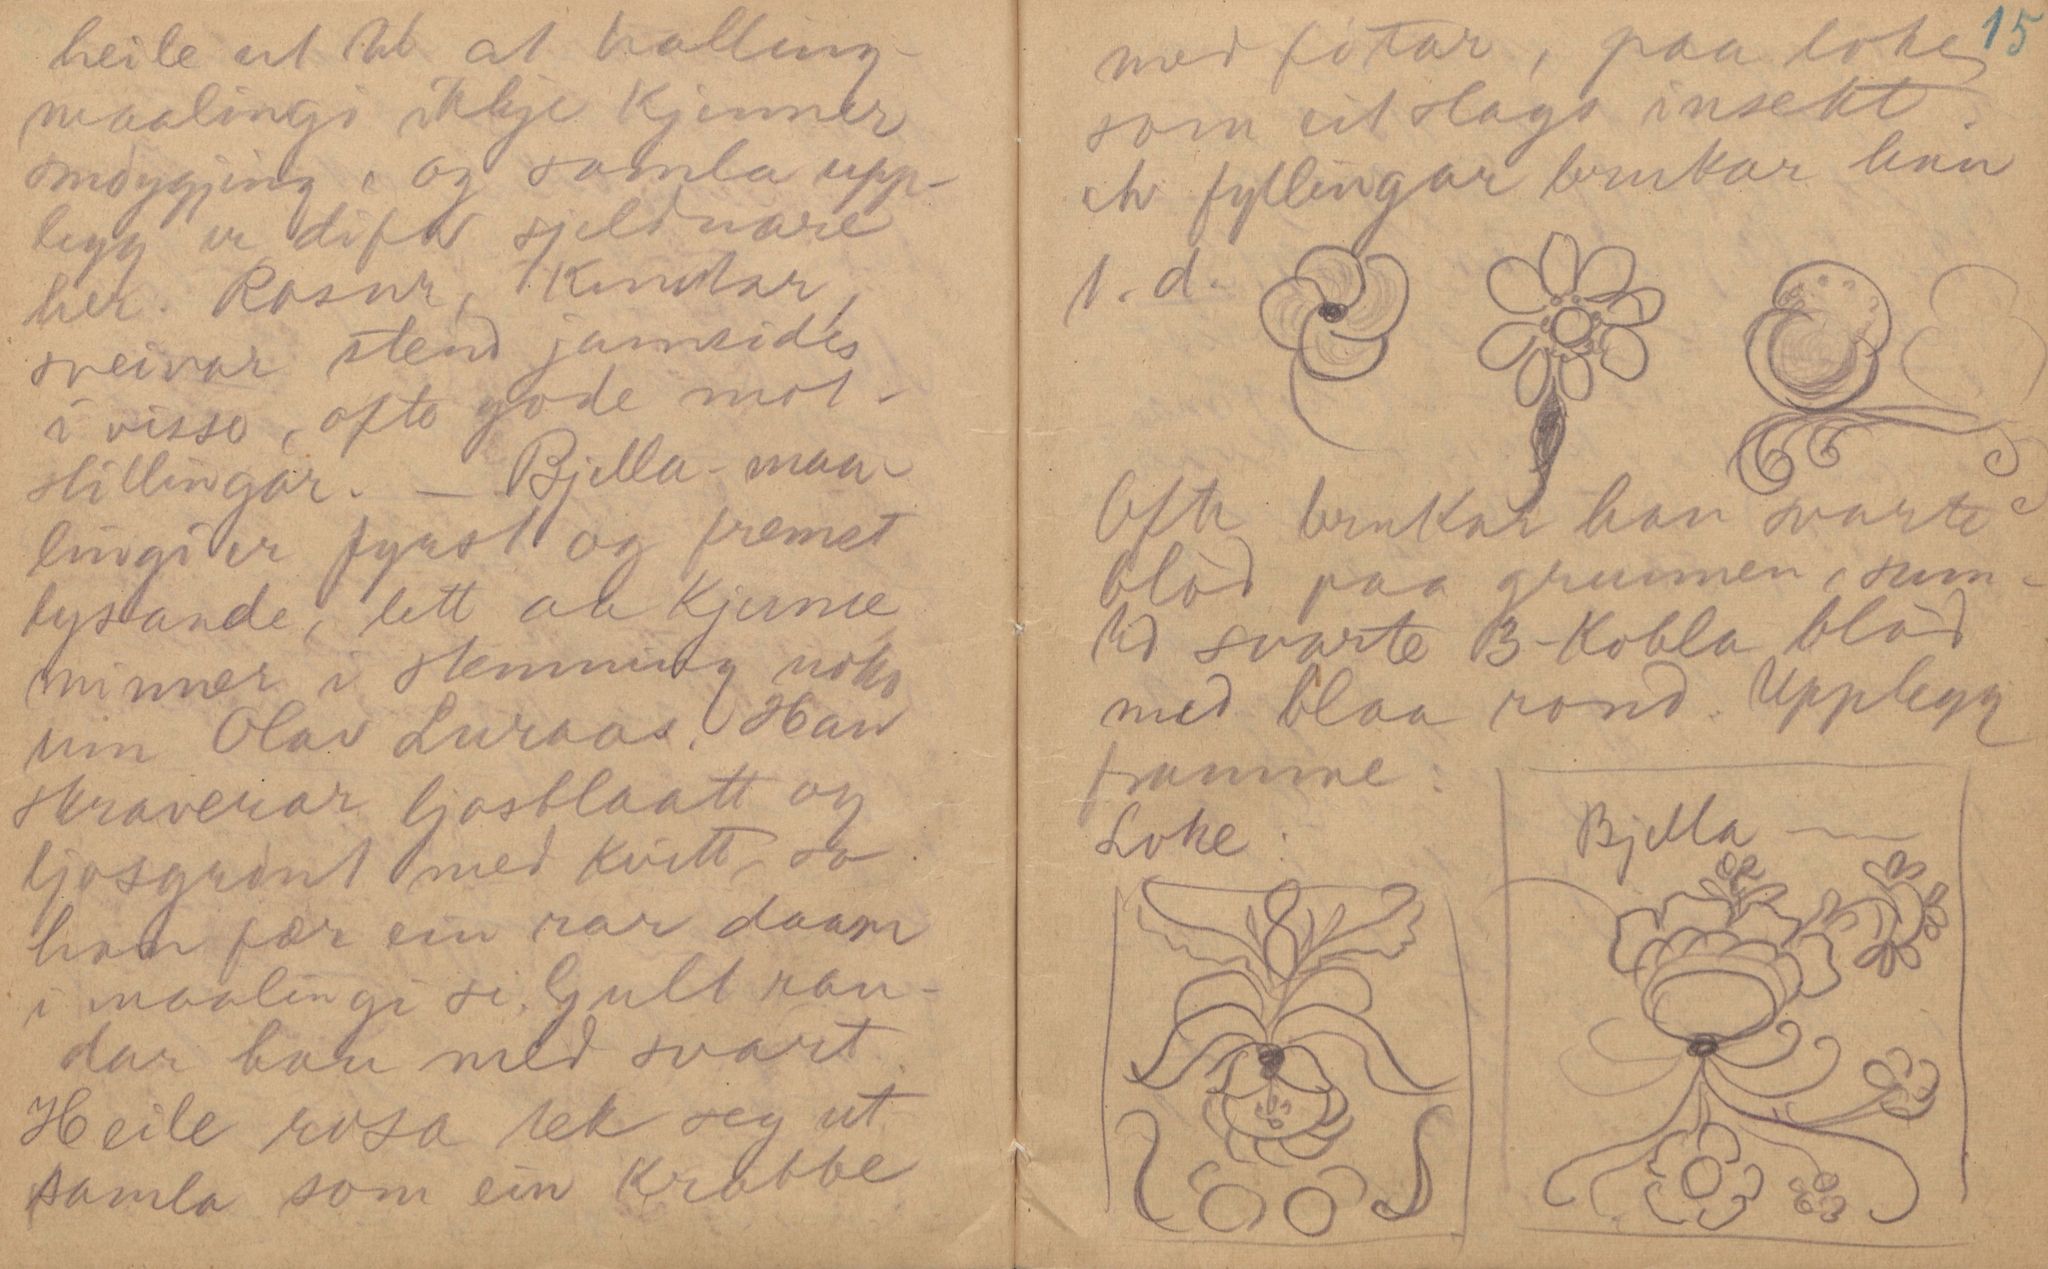 heile ut til at halling-
maalingi ikkje kjenner
smöygjing, og samla upp-
legg er difor sjeldnare
her. Rosur, Kruntar,
sveivar stend jamsides
i visso, ofto gode mot-
stillingar. — Bjella-maa-
lingi er fyrst og fremst
lysande, lett aa kjenne
minner i stemning noko
um Olav Luraas. Han
skraverar ljosblaatt og
ljosgrönt med kvitt, so
han fær ein rar daam
i maalingi si. Gult ran-
dar han med svart.
Heile rosa tek seg ut
samla som ein krabbe
15
med fötar, paa loke
som eit slags insekt.
fyllingar brukar han
1. d.
Ofte brukar han svarte
blöd paa grunnen, sum-
tid svarte B-kobla blöd
med blaa rond. Upplegg
framme:
Loke:
Bjella —